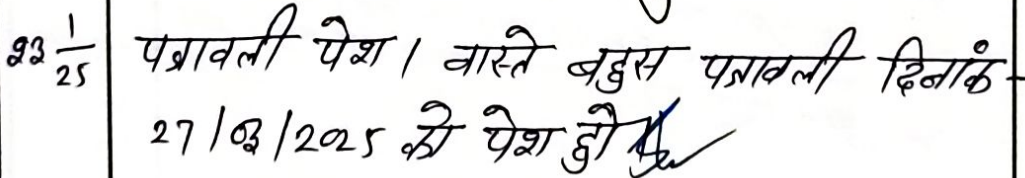 23 1/25 पत्रावली पेश। वास्ते बहस पत्रावली दिनांक
27/03/2025 को पेश हो